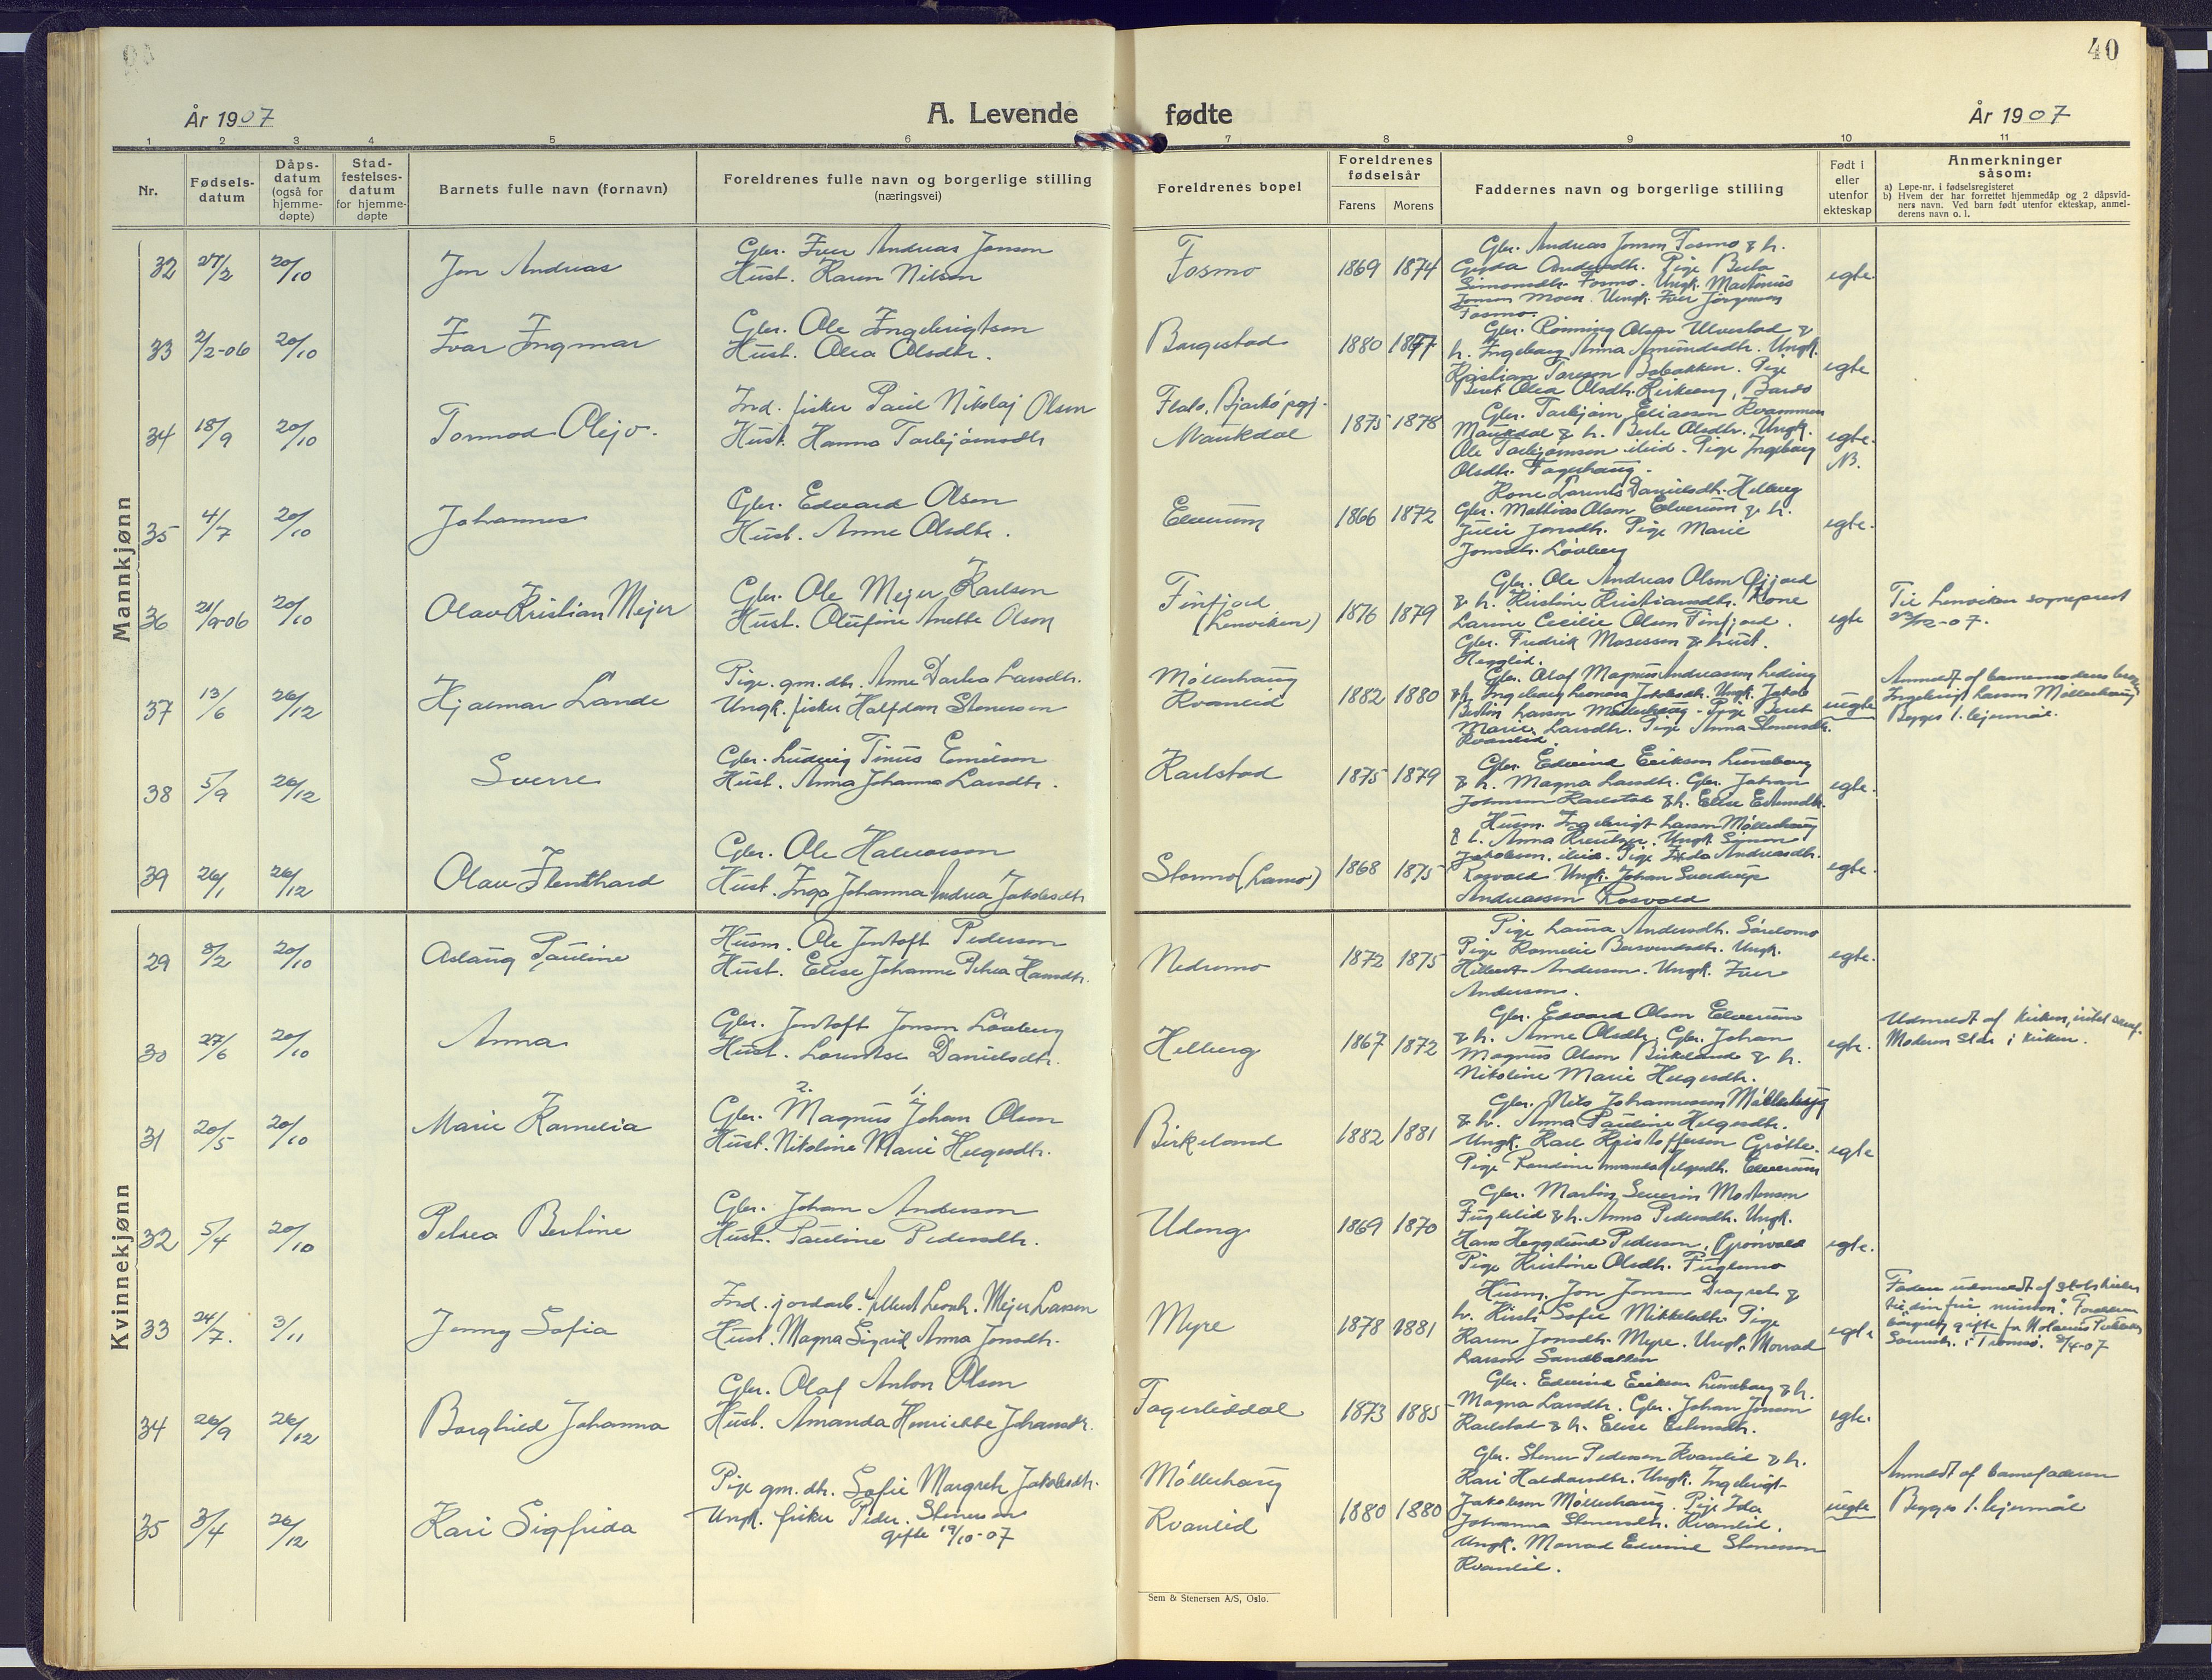 40
År 1907
A. Levende fødte
År 1907
1 2 3 4 5 6 7 8 9 10 11
Nr.
Fødsels-
datum
Dåps-
datum
(også for
hjemme-
døpte)
Stad-
festelses-
datum
for hjemme-
døpte
Barnets fulle navn (fornavn)
Foreldrenes fulle navn og borgerlige stilling
(næringsvei)
Foreldrenes bopel
Foreldrenes
fødselsår
Farens Morens
Faddernes navn og borgerlige stilling
Født i
eller
utenfor
ekteskap
Anmerkninger
såsom:
a) Løpe-nr. i fødselsregisteret
b) Hvem der har forrettet hjemmedåp og 2 dåpsvid-
ners navn. Ved barn født utenfor ekteskap, anmel-
derens navn o. l.
Mannkjønn
32 27/2 20/10 Jon Andreas
Gbr. Iver Andreas Jonson
Hust. Karen Nilson
Fosmo 1869 1874
Gbr. Andreas Jonson Fosmo & h.
Andersdtr. Pige
Simonsdtr. Fosmo. Ungk. Martinius
Jonson Moen. Ungk. Iver Jørgensen
Fosmo.
egte.
33 2/2-06 20/10 Ivar Ingmar
Gbr. Ole Ingebrigtson
Hust. Olea Olsdtr.
Borgestad 1880 1877
Gbr. Rønning Olsen Ulvestad &
h. Ingeborg Anna Amundsdtr. Ungk.
Kristian Toreson Bobakken. Pige
Beret Olea Olsdtr. Kirkeeng, Bardo
egte
34 18/9 20/10 Tormod Olejo.
Ind. fisker Paul Nikolaj Olsen
Hust. Hanna Torbjørnsdtr
Bjarkø pgj.
Maukdal 1875 1878
Gbr. Torbjørn Eliasson Kvammen
Maukdal & h. Berle Olsdtr. Ungk.
Ole Torbjørnson ibid. Pige Ingeborg
Olsdtr. Fagerhaug.
egte.
NB.
35 4/7 20/10 Johannes
Gbr. Edvard Olsen
Hust. Anne Olsdtr.
Elverum 1866 1872
Kone Lorents Danielsdtr. Helberg
Gbr. Mathias Olsen Elverum & h.
Julie Jonsdtr. Pige Marie
Jonsdtr. Løvberg
egte.
36 21/9-06 20/10 Olav Kristian Mejer
Gbr. Ole Mejer Karlson
Hust. Olufine Anette Olson
Finfjord
(Lenviken) 1876 1879
Gbr. Ole Andreas Olsen Gjjord
& h. Kristine Kristiansdtr. Kone
Larine Cecilie Olsen Finfjord.
Gbr. Fredrik Mosesson & hust.
Hegglid.
egte
Til Lenviken sogneprest
-07.
37 13/6 26/12 Hjalmar Lande
Pige. gm. dtr. Anne Dortea Larsdtr.
Ungk. fisker Halfdan Stenerson
Møllerhaug
Kvanlid 1882 1880
Gbr. Olaf Magnus Andreassen Leding
& h. Ingeborg Leonora Jakobsdtr. Ungk. Jakob
Bertin Larson Møllerhaug. Pige Beret
Marie Larsdtr. Pige Anna Stenersdtr.
Kvanlid.
uegte
Anmeldt af barnemoderens
Ingebrigt Larson Møllerhaug
Begges 1. lejermål.
38 5/9 26/12 Sverre
Gbr. Ludvig Tinus Emilson
Hust. Anna Johanna Larsdtr.
Karlstad 1875 1879
Gbr. Edvind Erikson Lundborg
& h. Magna Larsdtr. Gbr. Johan
Jonson Karlstad & h. Elise
egte.
39 26/1 26/12 Olav Flenthard
Gbr. Ole Halvorson
Hust. Inga Johanna Andrea Jakobsdtr
Stormo (Lamo) 1868 1875
Husm. Ingebrigt Larson Møllerhaug
& h. Anna Ungk. Simon
Jakobson, ibid. Pige Frida Andreasdtr.
Rosvold Ungk. Johan Sverdrup
Andreassen Rosvold
egte.
Kvinnekjønn
29 8/2 20/10 Aslaug Pauline
Husm. Ole Jentoft Pederson
Hust. Elise Johanne Petrea Hansdtr.
Nedremo 1872 1875
Pige Laura Andersdtr. Sørelomo
Pige Kornelie Ungk.
Anderson. Ungk. Iver
Anderson.
egte.
30 27/6 20/10 Anna
Gbr. Jentoft Jonson Løvberg
Hust. Lorentse Danielsdtr.
Helberg 1867 1872
Gbr. Edvard Olsen Elverum
& h. Anne Olsdtr. Gbr. Johan
Magnus Olsen Birkeland & h.
Nikoline Marie Helgesdtr.
egte.
Udmeldt af kirken,
Moderen står i kirken.
31 20/5 20/10 Marie Kornelia
2. 1.
Gbr. Magnus Johan Olson
Hust. Nikoline Marie Helgesdtr.
Birkeland 1882 1881
Gbr. Nils Johannesson Møllerhaug
& h. Anna Pauline Helgesdtr.
Ungk. Karl Kristofferson Grøtte.
Pige Randine Amanda Helgesdtr. Elverum
egte
32 5/4 20/10 Petrea Bertine
Gbr. Johan Anderson
Hust. Pauline Pedersdtr.
Udeng 1869 1870
Gbr. Martin Severin Mortenson
Fuglelid & h. Anna Pedersdtr. Ungk.
Hans Hegglund Pederson, Grønvold
Pige Kristine Olsdtr. Fuglemo
egte.
33 24/7. 3/11 Jenny Sofia
Ind. jordarb. Albert Leonh. Mejer Larsen
Hust. Magna Sigrid Anna Jonsdtr.
Myre 1878 1881
Husm. Jon Jonson &
h. Sofie Mikkelsdtr. Pige
Karen Jonsdtr. Myre. Ungk. Monrad
Larson Sandbakken
egte
Faden udmeldt af statskirken
til "den frie mission". Foreldrene
borgerlig gifte
i Tromsø. 2/4-07
34 26/9 26/12 Borghild Johanna
Gbr. Olaf Anton Olsen
Hust. Amanda Henriette Johansdtr.
Fagerliddal 1873 1885
Gbr. Edvind Erikson Lundborg & h.
Magna Larsdtr. Gbr. Johan Jonson
Karlstad & h. Elise
egte.
35 3/4 26/12 Kari Sigfrida
Pige gm. dtr. Sofie Margreth Jakobsdtr.
Ungk. fisker Peder Stenerson
gifte 19/10-07
Møllerhaug
Kvanlid 1880 1880
Gbr. Stener Pederson Kvanlid & h.
Kari Haldorsdtr. Ungk. Ingebrigt
Jakobson Møllerhaug. Pige Ida
Johanna Stenersdtr. Kvanlid.
Ungk. Monrad Edvind Stenerson
Kvanlid.
uegte
Anmeldt af barnefaderen
Begges 1. lejermål
Sem & Stenersen A/S, Oslo.